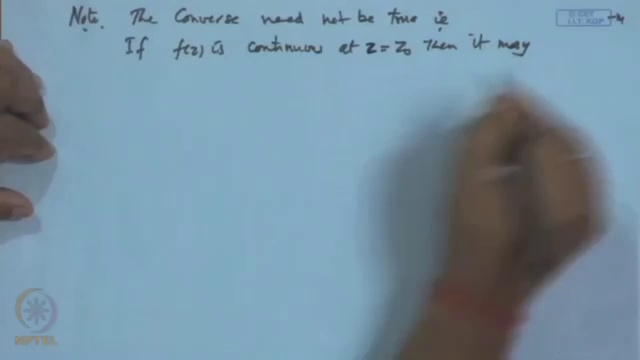 Note. The Converse need not be true ie
If f(z) is continuous at z = z₀ then it may
© CET
I.I.T. KGP
NPTEL